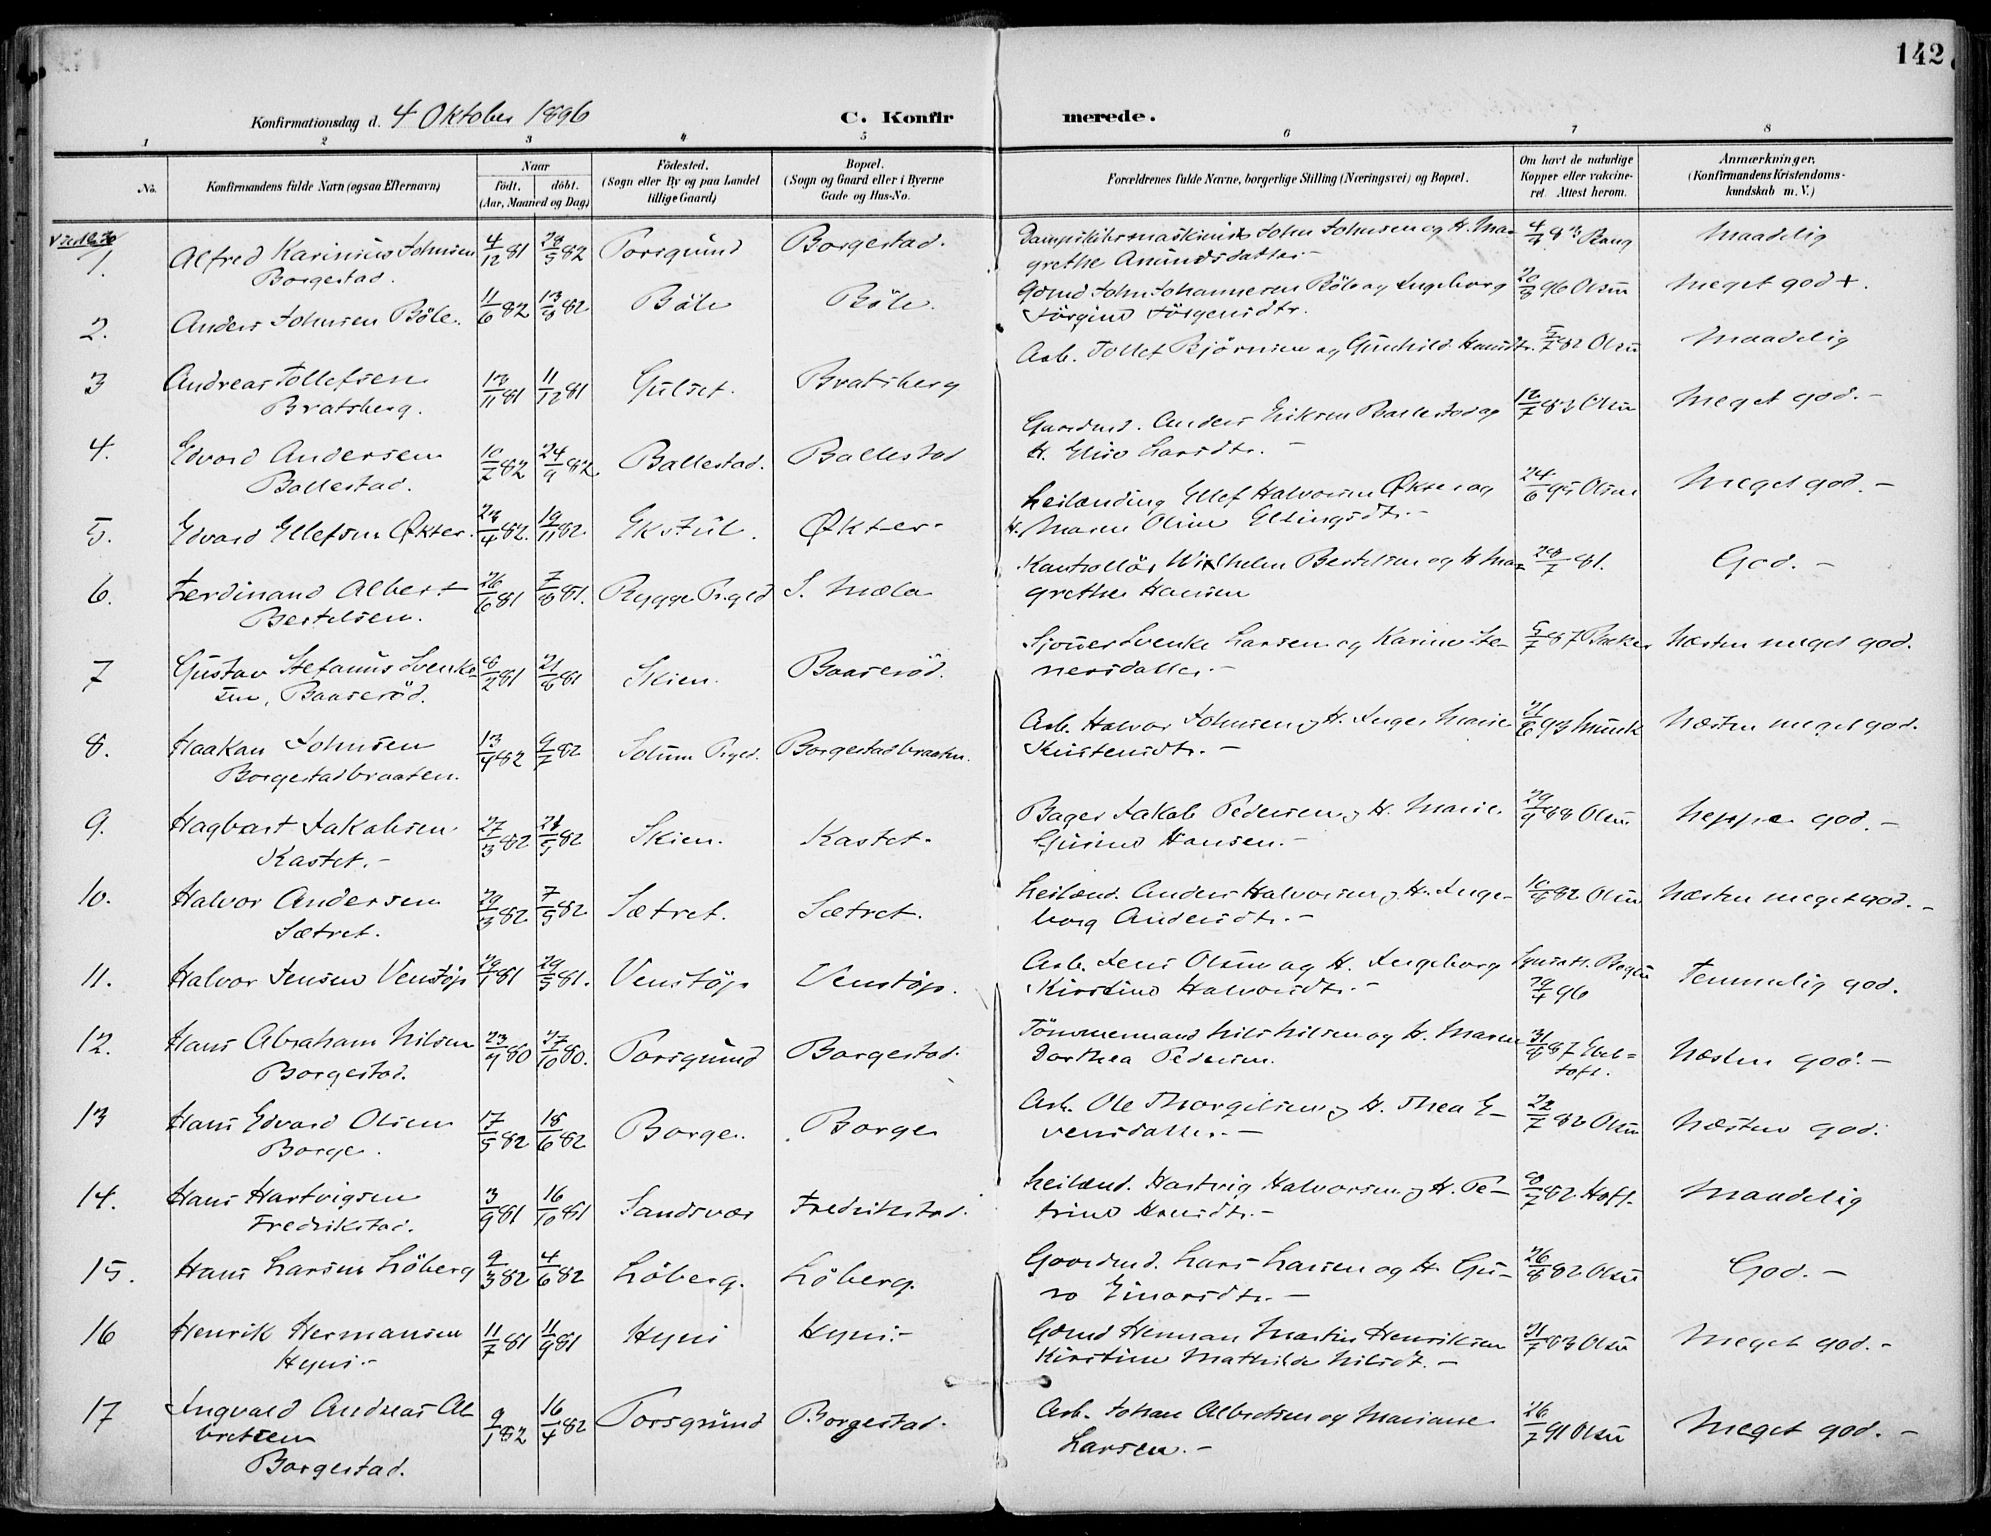 142
Konfirmationsdag d. 4 Oktober 1896
C. Konfirmerede.
1 2 3 4 5 6 7 8
No.
Konfirmandens fulde Navn (ogsaa Efternavn)
Naar
født. døbt.
(Aar, Maaned og Dag)
Fødested.
(Sogn eller By og paa Landet
tillige Gaard)
Bopæl.
(Sogn og Gaard eller i Byerne
Gade og Hus-No.
Forældrenes fulde Navne, borgerlige Stilling (Næringsvei) og Bopæl.
Om havt de naturlige
Kopper eller vaccine-
ret. Attest herom.
Anmærkninger,
(Konfirmandens Kristendoms-
kundskab m. V.)
1. Alfred Karinius Johnsen 4/12 81 28/5 82 Porsgrund Borgestad. John Johnsen og H. Ma- 4/7 83 Maadelig
Borgestad. grethe Amundsdatter –
2. Anders Johnsen Böle. 11/6 82 13/8 82 Böle Böle. Gdmd John Johannesen Böle og Ingeborg 20/8 96 Olsen Meget god +.
Jörgine Jörgensdtr.
3 Andreas Tollefsen 13/11 81 11/12 81 Gulset. Bratsberg Arb. Tollef Bjørnsen og Gunhild Hansdtr. 5/7 82 Olsen Maadelig
Bratsberg.
4. Edvard Andersen 10/7 82 24/9 82 Ballestad. Ballestad Gaardmd. Anders Eriksen Ballestad og 12/7 83 Olsen Meget god. –
Ballestad. H. Elise Larsdtr. –
5. Edvard Ellefsen Økter. 23/4 82. 19/11 82. Ekstul. Økter. Leilænding Ellef Halvorsen Økter og 24/6 95 Olsen Meget god. –
H. Maren Oline Ellingsdtr. –
6. Ferdinand Albert 26/6 81 7/8 81. Rygge Prgld S. Mæla Kontrollør Wilhelm Bertelsen og H Ma- 28/7 81. God. –
Bertelsen. grethe Hansen
7 Gustav Stefanus Svenke- 8/2 81 21/8 81 Skien. Baaserød. Svenke Larsen og Karine Ste- 5/7 87 Næsten meget god.
sen, Baaserød. nersdatter. –
8. Haakan Johnsen 13/4 82 9/7 82 Solum Prgld. Borgestadbraaten. Arb. Halvor Johnsen og H. Inger Marie 21/6 93 Munk Næsten meget god.
Borgestadbraaten. Kristensdtr. –
9. Hagbart Jakobsen 27/3 82 28/5 82 Skien. Kastet. Bager Jakob Pedersen og H. Marie 29/9 88 Olsen Neppe god. –
Kastet. – Gurine Hansen. –
10. Halvor Andersen 29/3 82 7/5 82 Sætret. Sætret. Leilænd. Anders Halvorsen og H. Inge- 10/8 82 Olsen Næsten meget god. –
Sætret. borg Andersdtr. –
11. Halvor Jensen Venstöp 29/1 81 29/5 81. Venstöp Venstöp. Arb. Jens Olsen og H. Ingeborg Temmelig god.
Kirstine Halvorsdtr. – 29/4 96
12. Hans Abraham Nilsen 23/9 80 27/10 80. Porsgrund Borgestad. Tömmermand Nils Nilsen og H. Maren 31/8 87 Næsten god. –
Borgestad. Dorthea Pedersen.
13 Hans Edvard Olsen 17/5 82 18/6 82 Borge. Borge Arb. Ole Thorgilsen og H. Thea E- 22/7 82 Olsen Næsten god.
Borge. vensdatter. –
14. Hans Hartvigsen 3/9 81 16/10 81 Sandsvær Fredrikstad. Leilænd. Hartvig Halvorsen og H. Pe- 8/7 82 Hoff. Maadelig
Fredrikstad. trine Hansdtr. –
15. Hans Larsen Löberg 9/3 82 4/6 82 Löberg. Löberg. Gaardmd. Lars Larsen og H. Gu- 26/8 82 Olsen God. –
ro Einarsdtr. –
16 Henrik Hermansen 11/7 81 11/9 81 Hyni Hyni. – Gdmd Herman Martin Henriksen 21/7 83 Olsen Meget god. –
Hyni. – Kirstine Mathilde Nilsdt. –
17 Ingvald Andreas Al- 9/1 82 16/4 82 Porsgrund Borgestad. Arb. Johan Albretsen og Mariane 26/7 91 Olsen Meget god. –
bretsen Larsen. –
Borgestad.